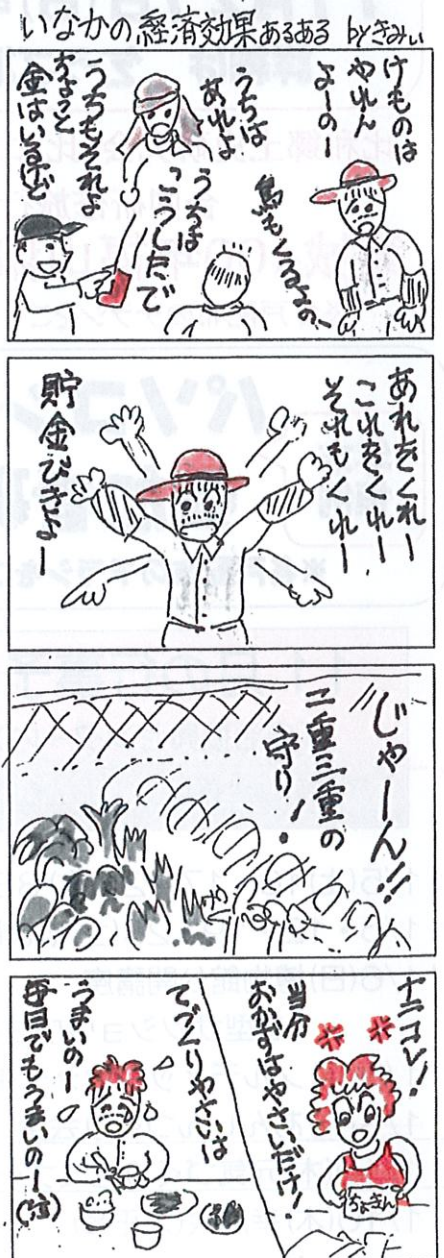 いなかの経済効果あるある byきみぃ
けものは
やれん
よーの!
鳥もくるよの、
うちは
あれよ
うちは
こうしたで
うちもそれよ
ちょっと
金はいるけど
あれをくれー
これをくれー
それもくれー
貯金びきよー
じゃーん!!
二重三重の
守り!
ナニコレ!
当分
おかずはやさいだけ!
ちょきん
てづくりやさいは
うまいのー
毎日でもうまいのー(泣)